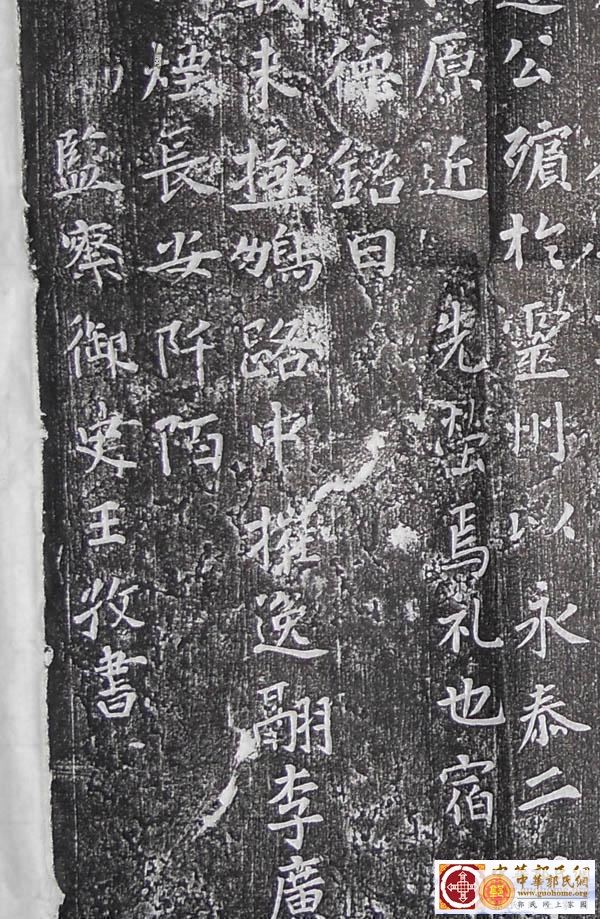 公殯於靈州以永泰二
原近 先塋焉礼也宿
德銘曰
未極鵷路中摧逸翮李廣
煙長安阡陌
監察御史王牧書
中華郭氏網
http://www.guohome.org
郭氏網上家園